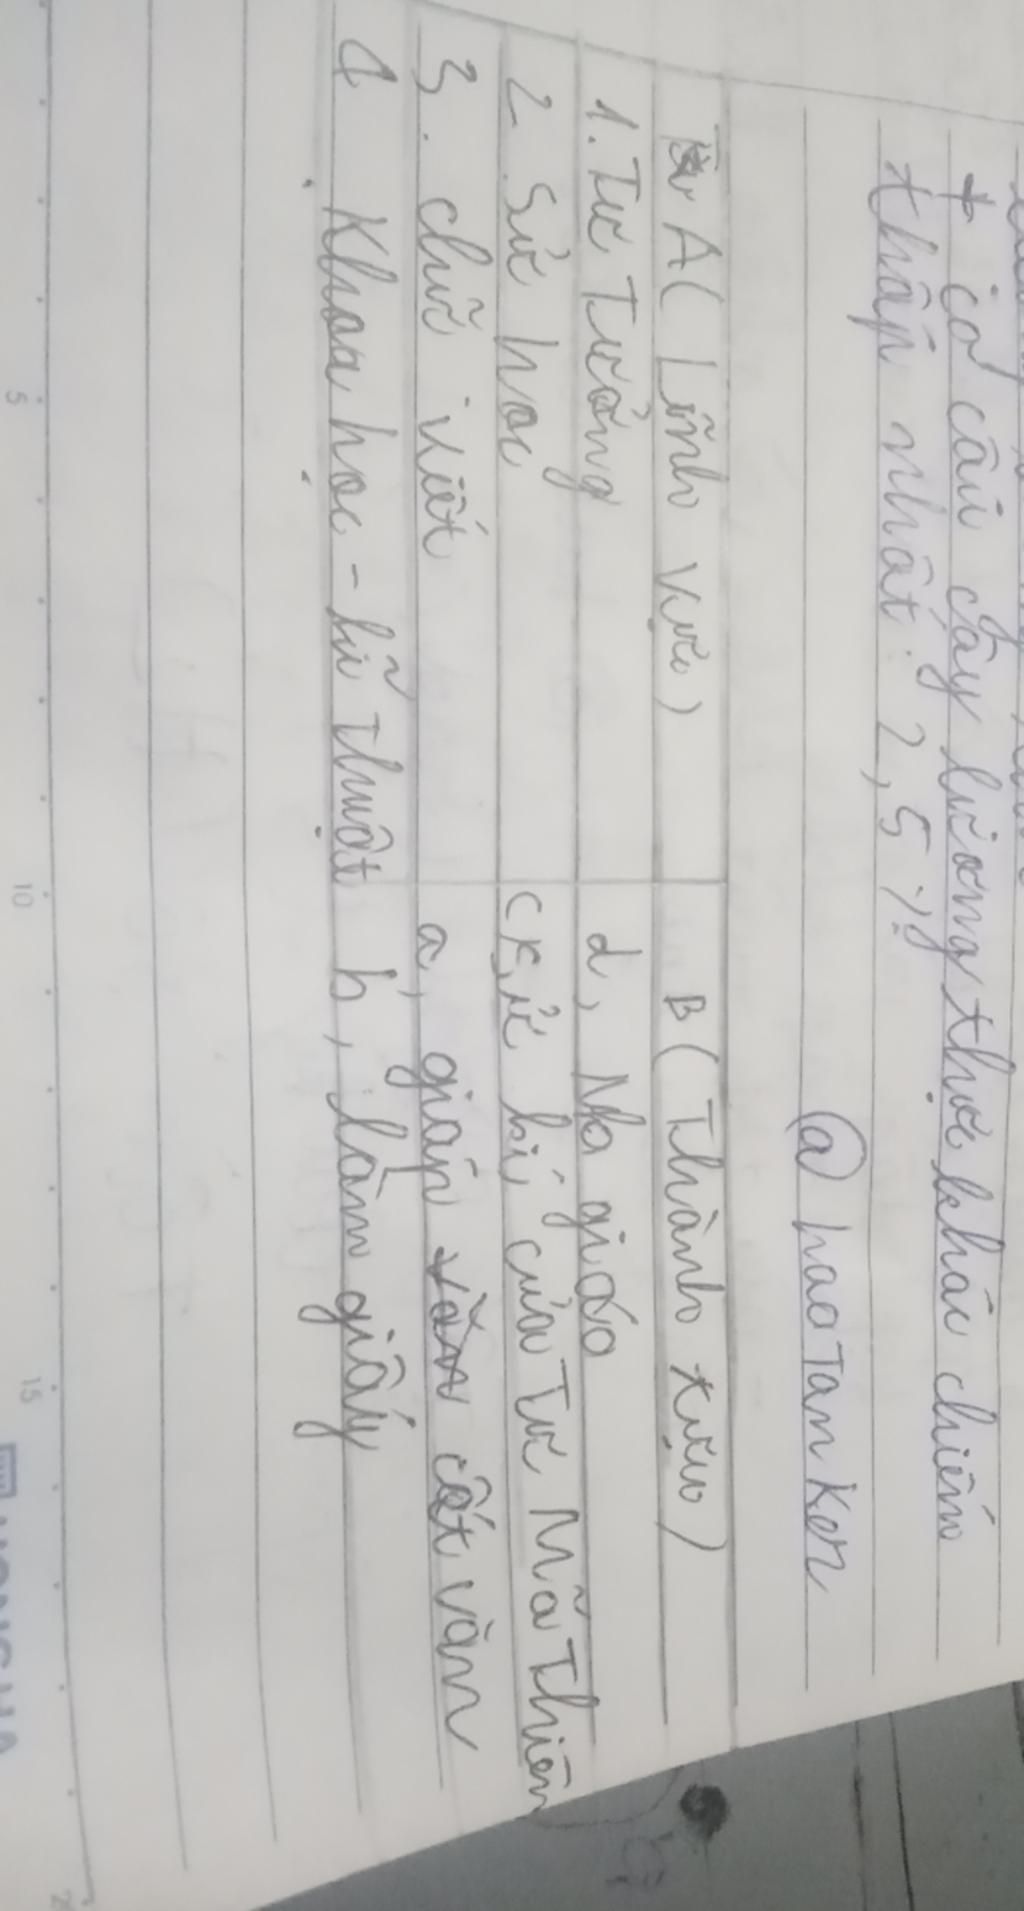 + cơ cấu cây lương thực khác chiếm
thấp nhất: 2,5 %
@ haoTanKen
A( Lĩnh vực)    B( Thành tựu)
1. Tư Tưởng    d, Nho giáo
2. Sử học    c, Sử kí, của Tư Mã Thiên
3. chữ viết    a, giáp cốt văn
4 Khoa học - kĩ thuật    b, làm giấy
5    10    15